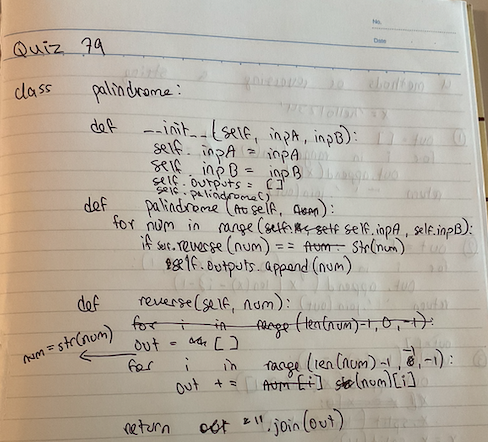 No.
Date
Quiz 79
class palindrome:
def __init__(self, inpA, inpB):
self.inpA = inpA
self.inpB = inpB
self.outputs = []
self.palindrome()
def palindrome(self, ):
for num in range(self.inpA, self.inpB):
if self.reverse(num) == str(num)
self.outputs.append(num)
def reverse(self, num):
for i in range(len(num)-1, 0, -1):
num = str(num)
out = []
for i in range(len(num)-1, -1, -1):
out += num[i] str(num)[i]
return "".join(out)